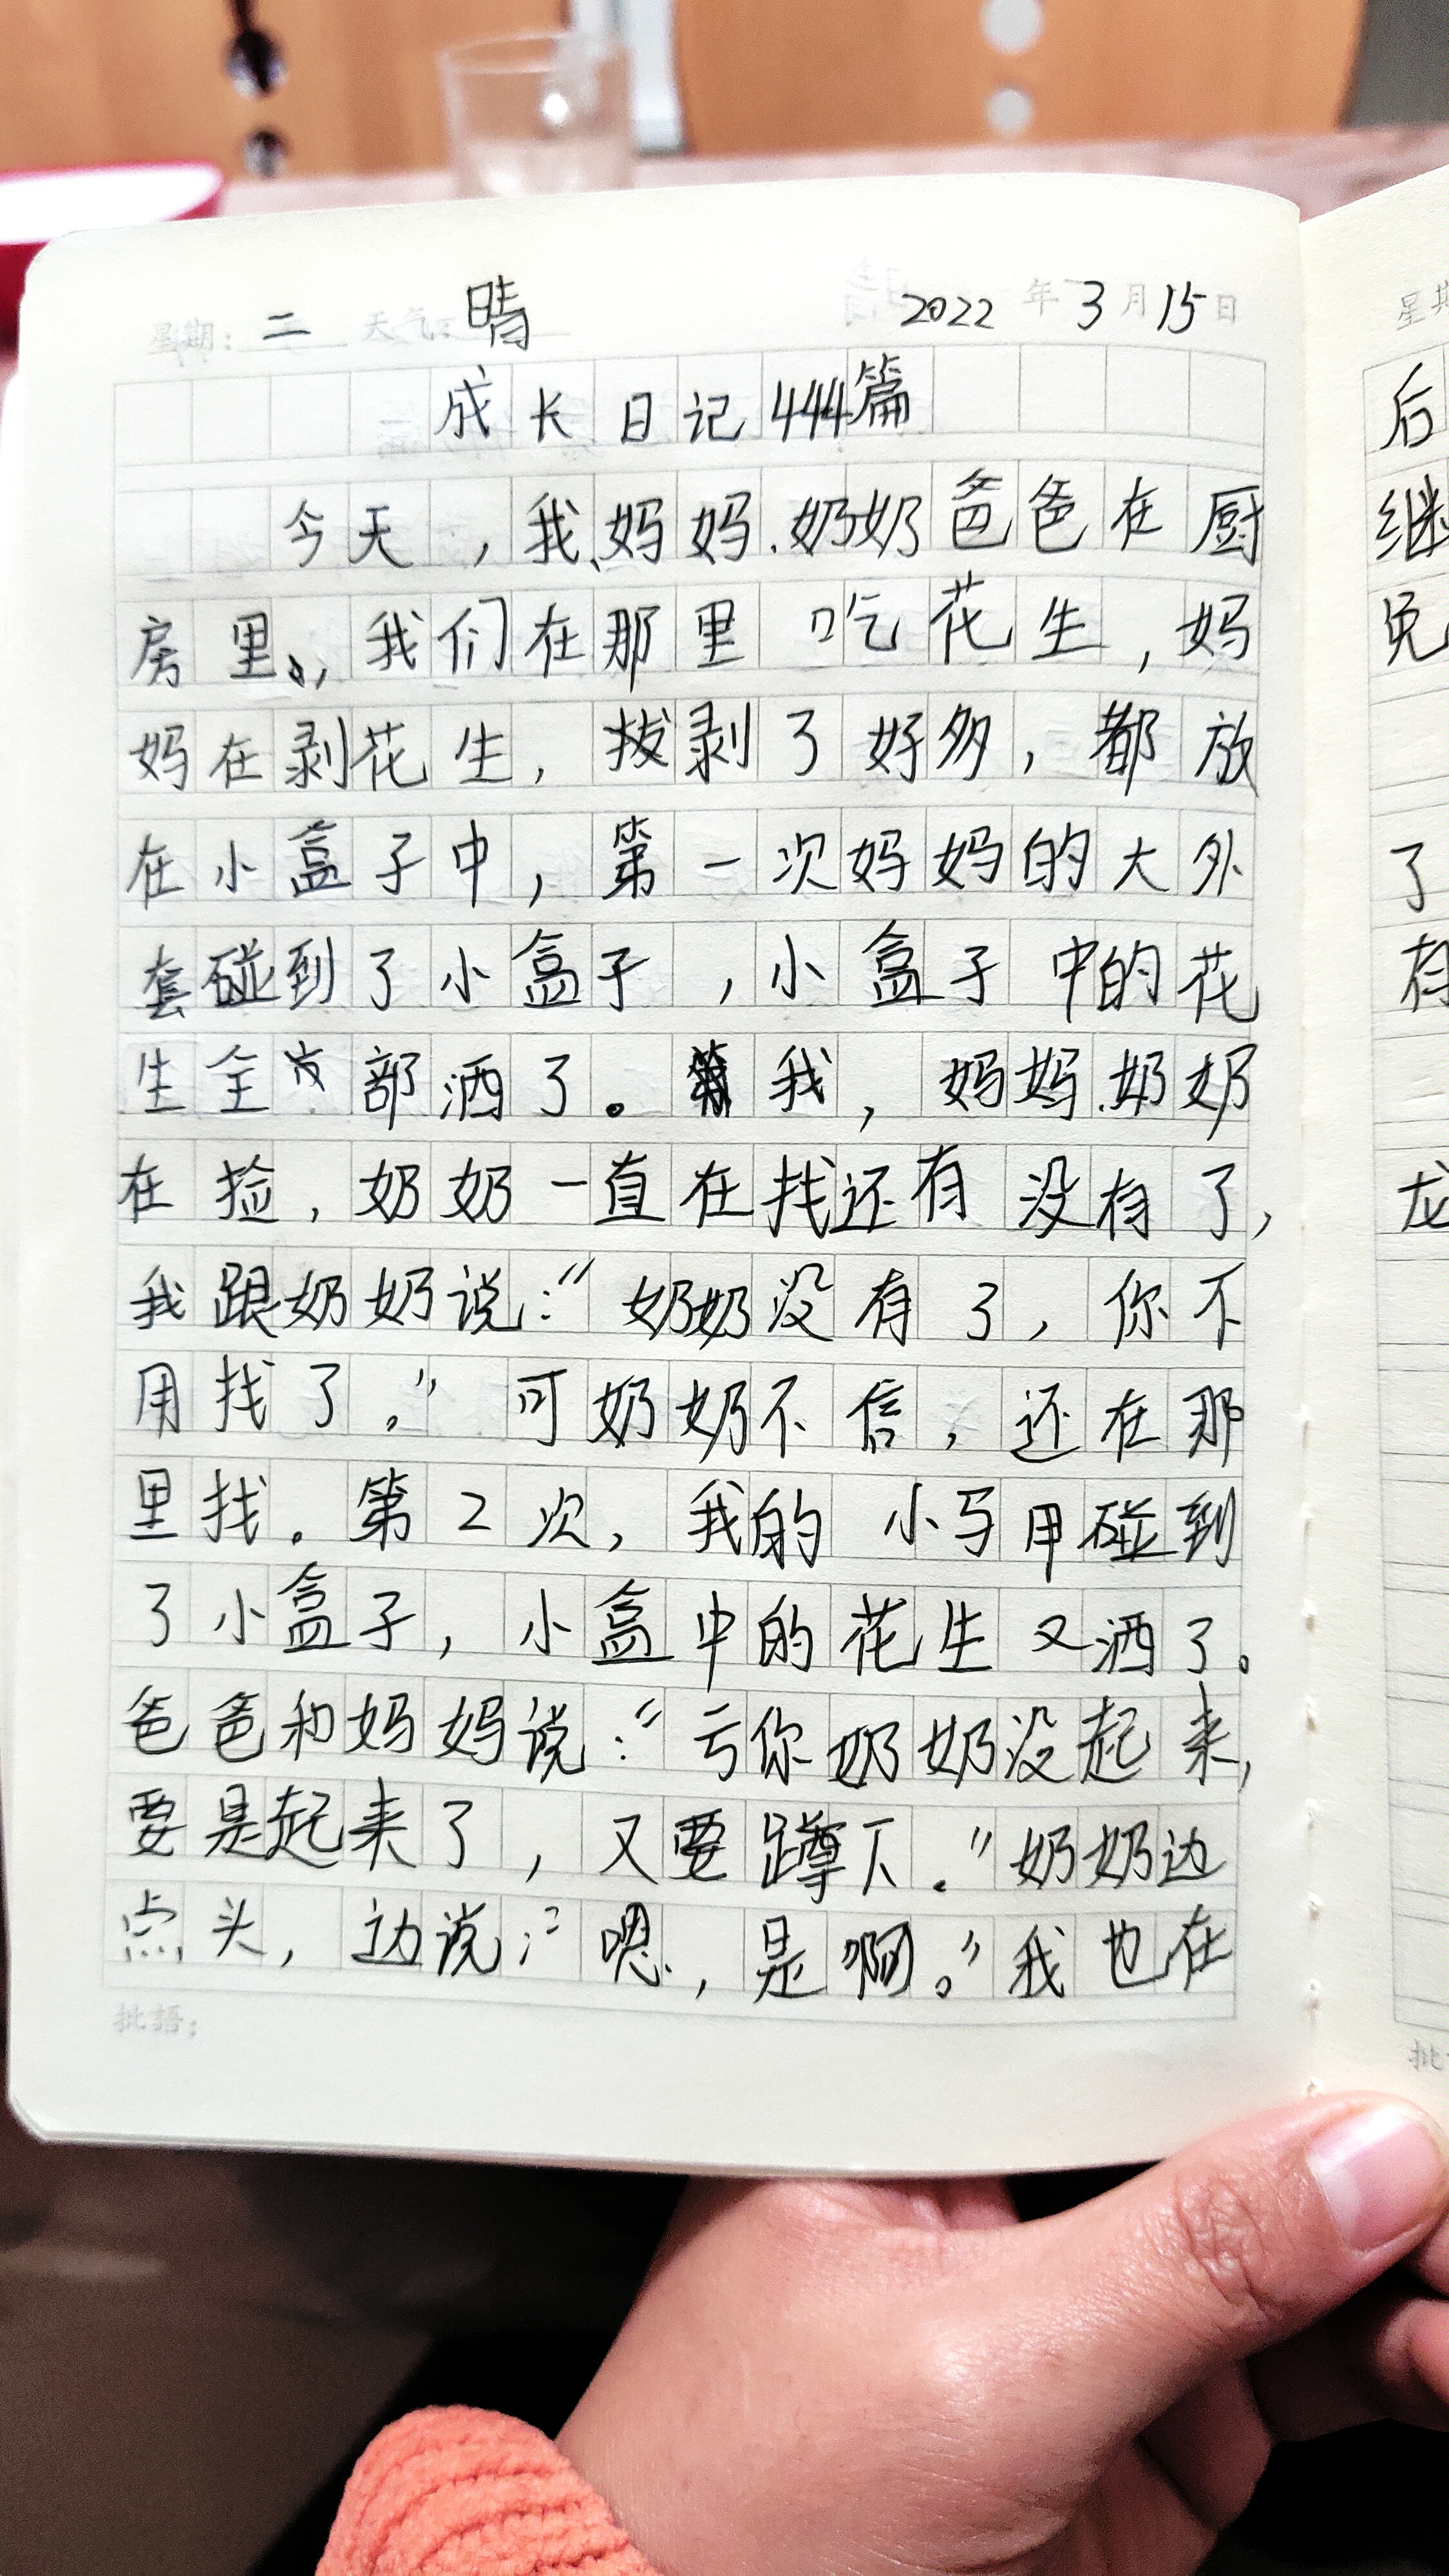 星期：二 天气：晴 2022年3月15日
成长日记444篇
今天，我、妈妈、奶奶爸爸在厨
房里。，我们在那里吃花生，妈
妈在剥花生，拔剥了好多，都放
在小盒子中，第一次妈妈的大外
套碰到了小盒子，小盒子中的花
生全部洒了。我，妈妈、奶奶
在捡，奶奶一直在找还有没有了，
我跟奶奶说：“奶奶没有了，你不
用找了。”可奶奶不信，还在那
里找。第2次，我的小马甲碰到
了小盒子，小盒中的花生又洒了。
爸爸和妈妈说：“亏你奶奶没起来，
要是起来了，又要蹲下。”奶奶边
点头，边说：“嗯，是啊。”我也在
批語：
星期
后
继
免
了
有
龙
批